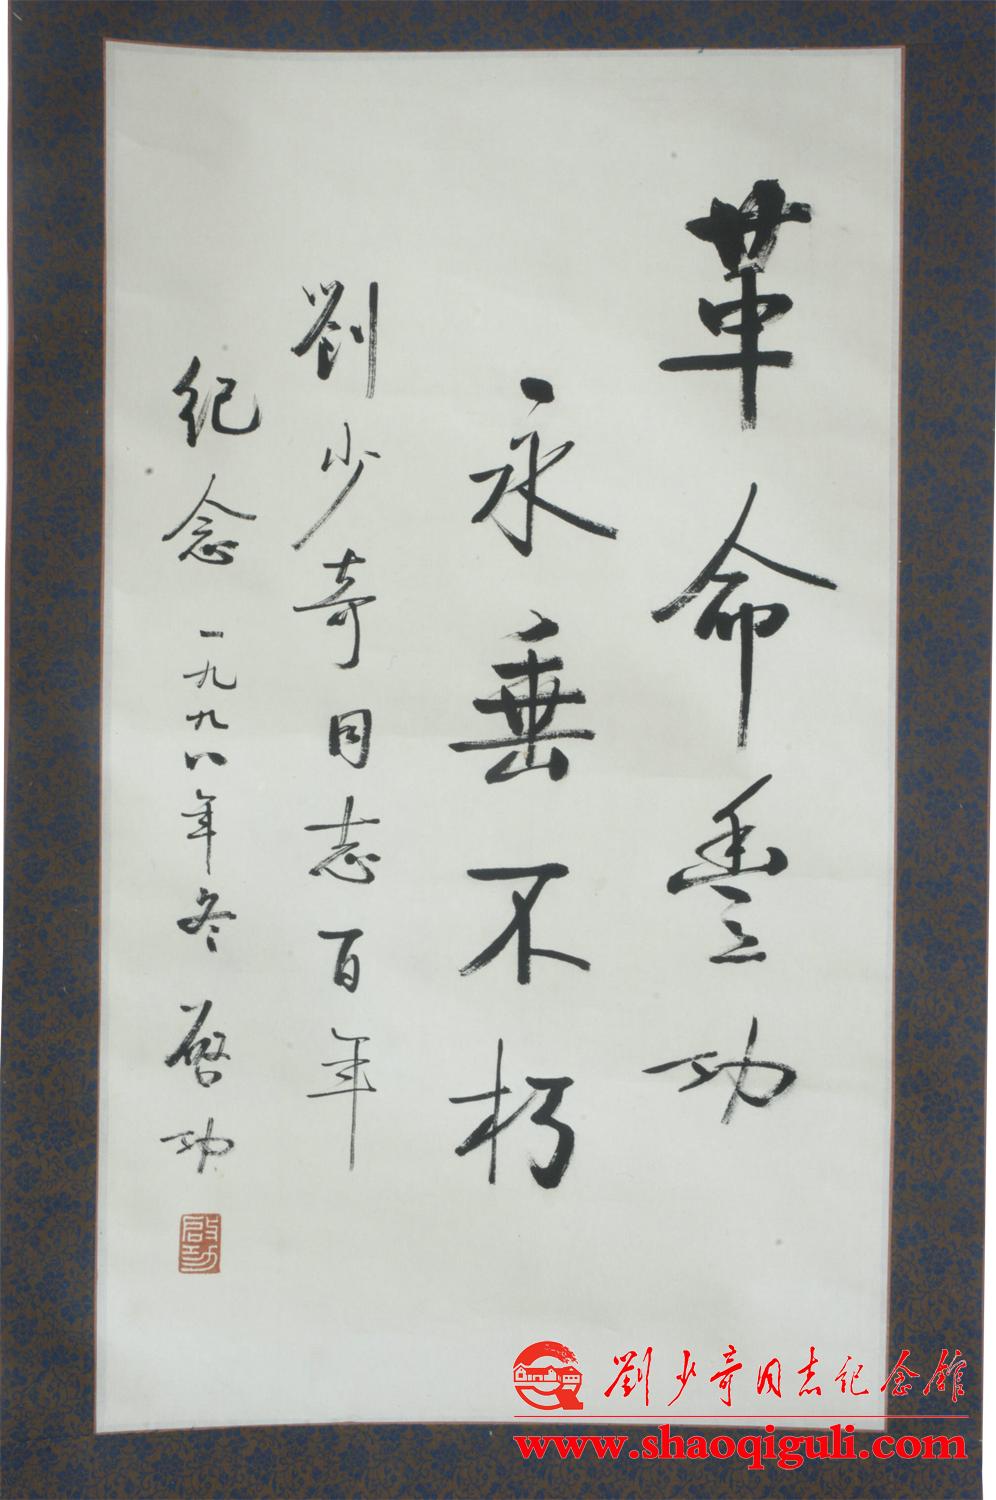 革命豐功
永垂不朽
劉少奇同志百年
纪念 一九九八年冬 啓功
啟功
劉少奇同志纪念館
www.shaoqiguli.com